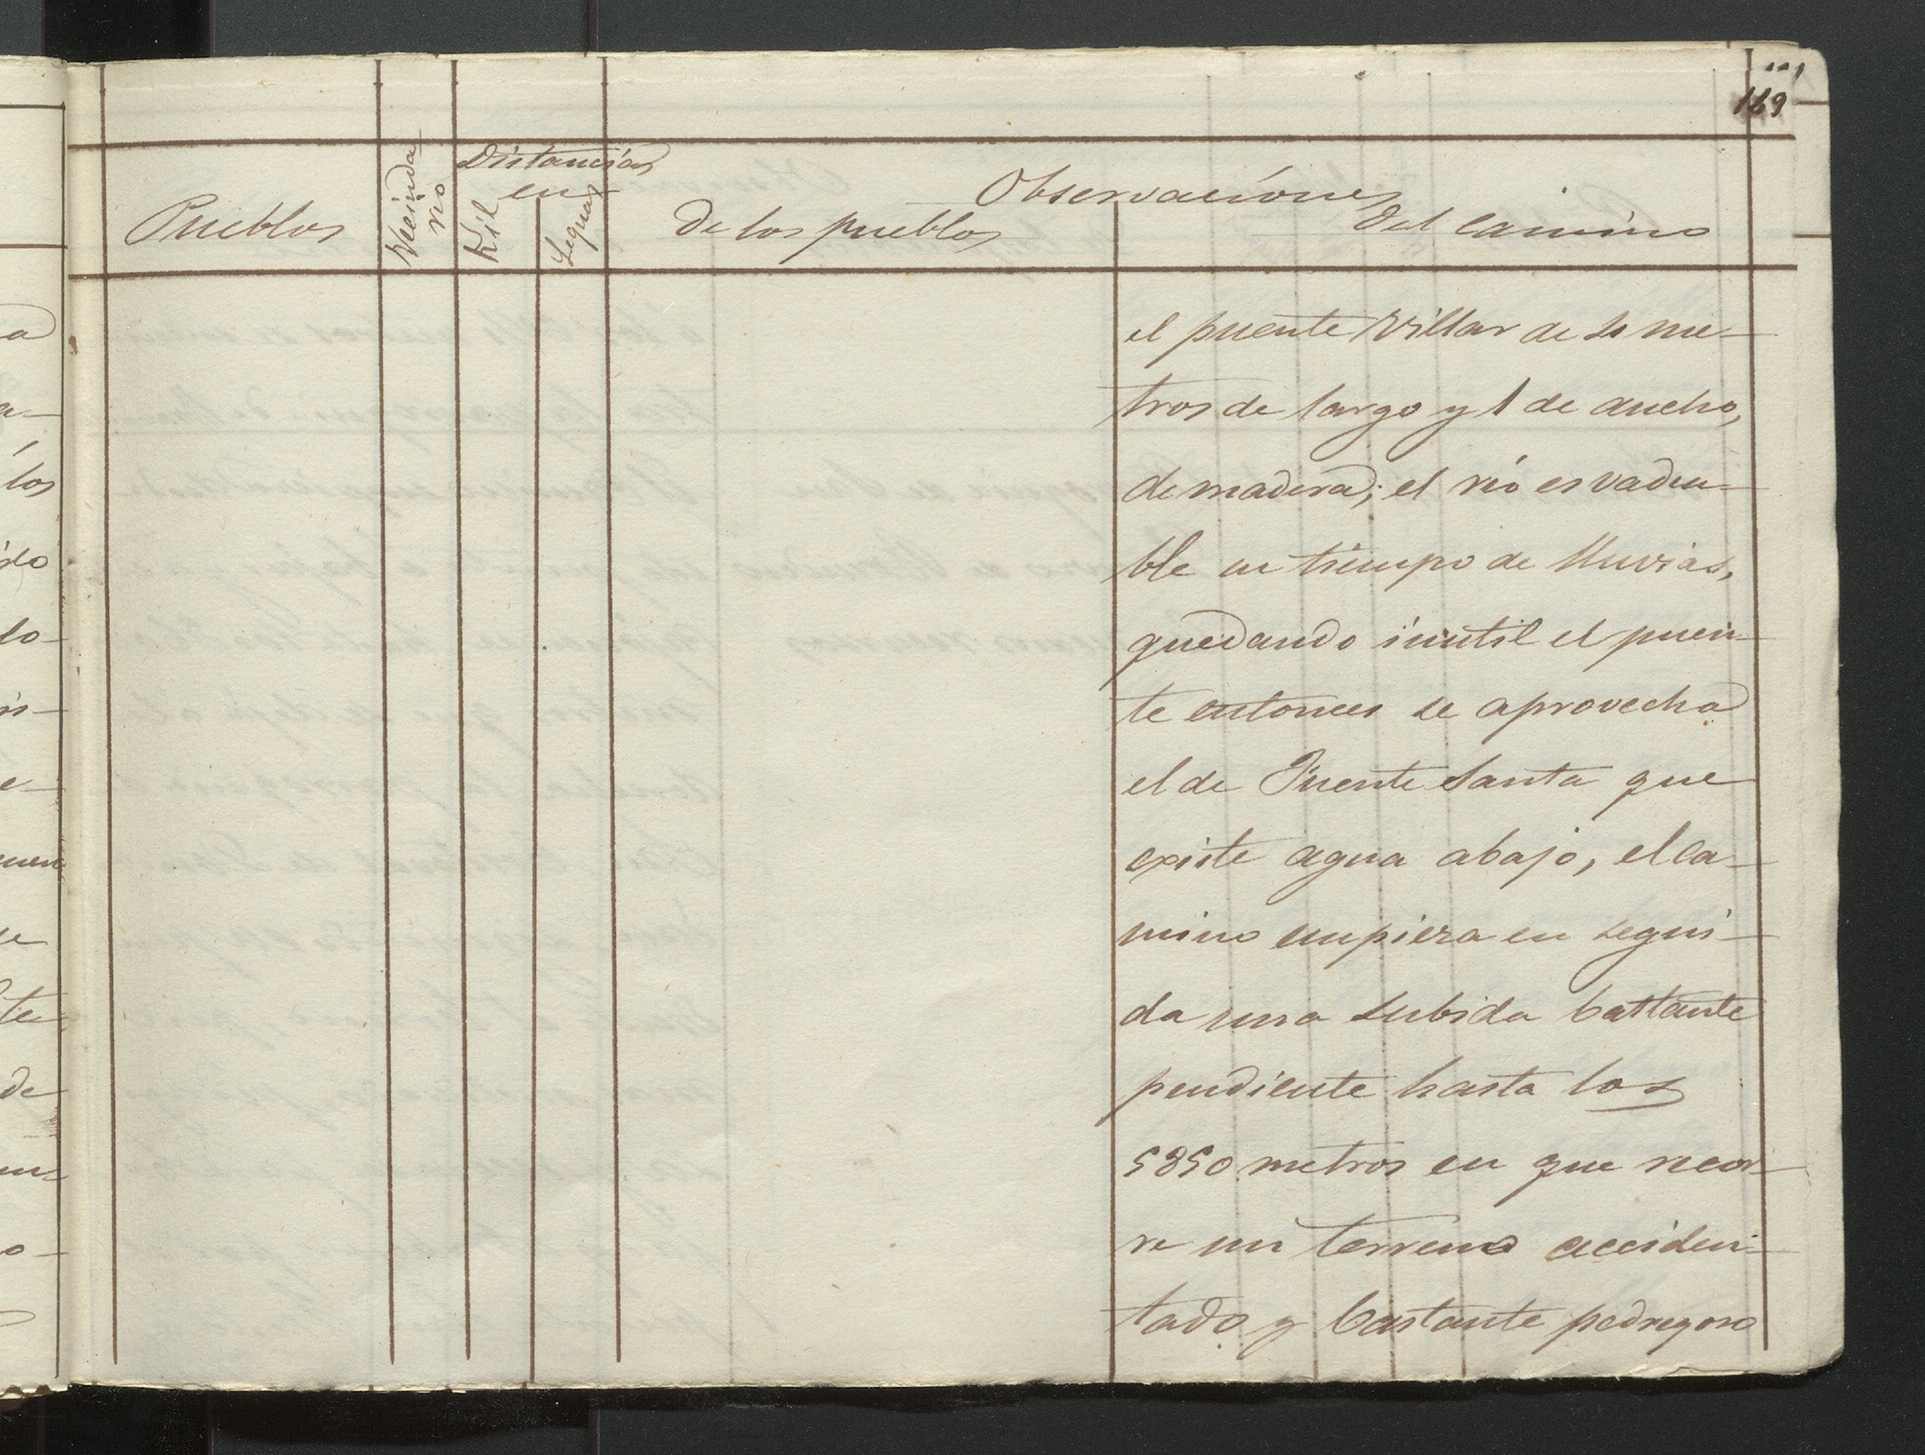 169
Pueblos
Vecinda
rio
Distancias
en
Kil
Leguas
Observaciones
De los pueblos
Del camino
el puente Villar de me-
tros de largo y 1 de ancho,
de madera; el río es vadea-
ble en tiempo de lluvias,
quedando inutil el puen-
te entonces se aprovecha
el de Puente Santa que
existe agua abajo, el ca-
mino empieza en segui-
da una subida bastante
pendiente hasta los
5850 metros en que recor-
re un terreno acciden-
tado y bastante pedregoso
a
a-
los
do
lo-
e-
te
de
o-